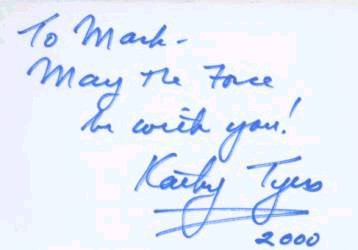 To Mark -
May the Force
be with you!
Kathy Tyers
2000